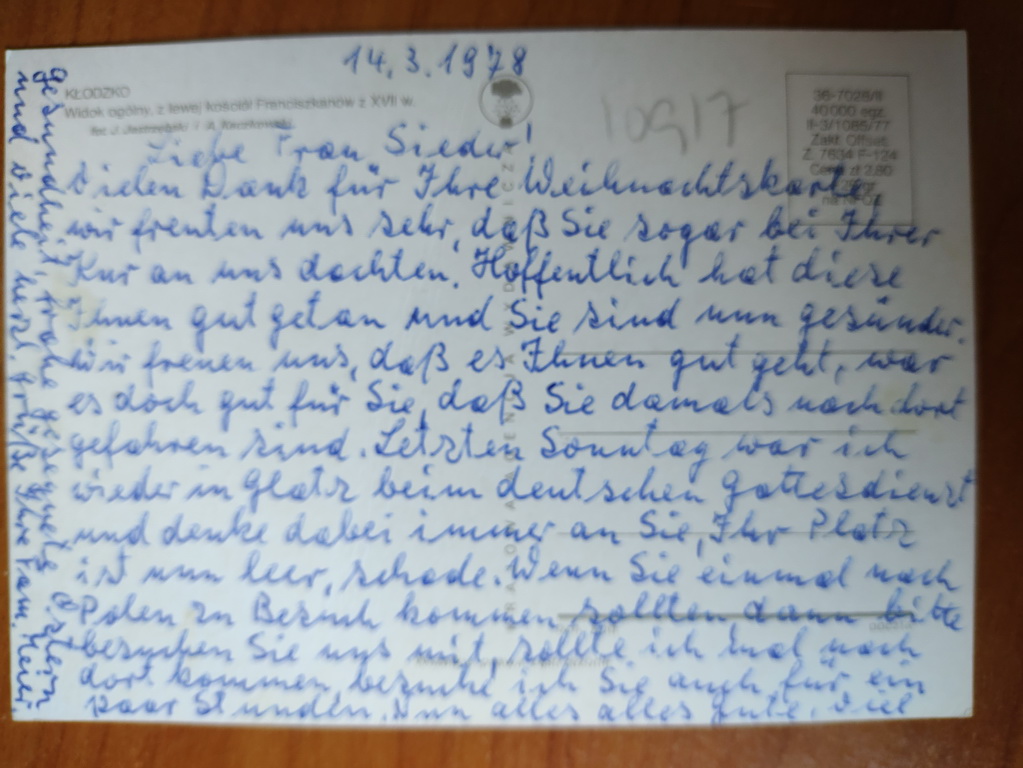 14. 3. 1978
KŁODZKO
Widok ogólny, z lewej kościół Franciszkanów z XVII w.
fot. J.
10917
36-7028/II
40 000 egz.
II-3/1085/77
Zakł. Offset.
Z. 7634 F-124
Cena zł 2,80
Liebe Frau Sieder!
Vielen Dank für Ihre Weihnachtskarte,
wir freuten uns sehr, daß Sie sogar bei Ihrer
Kur an uns dachten. Hoffentlich hat diese
Ihnen gut getan und Sie sind nun gesünder.
Wir freuen uns, daß es Ihnen gut geht, war
es doch gut für Sie, daß Sie damals nach dort
gefahren sind. Letzten Sonntag war ich
wieder in Glatz beim deutschen Gottesdienst
und denke dabei immer an Sie, Ihr Platz
ist nun leer, schade. Wenn Sie einmal nach
Polen zu Besuch kommen sollten dann bitte
besuchen Sie uns mit, sollte ich mal nach
dort kommen, besuche ich Sie auch für ein
paar Stunden. Nun alles alles gute, viel
Gesundheit, frohe gesegnete Ostern
und viele herzl. Grüße Ihre Fam.
KRAJOWA AGENCJA WYDAWNICZA